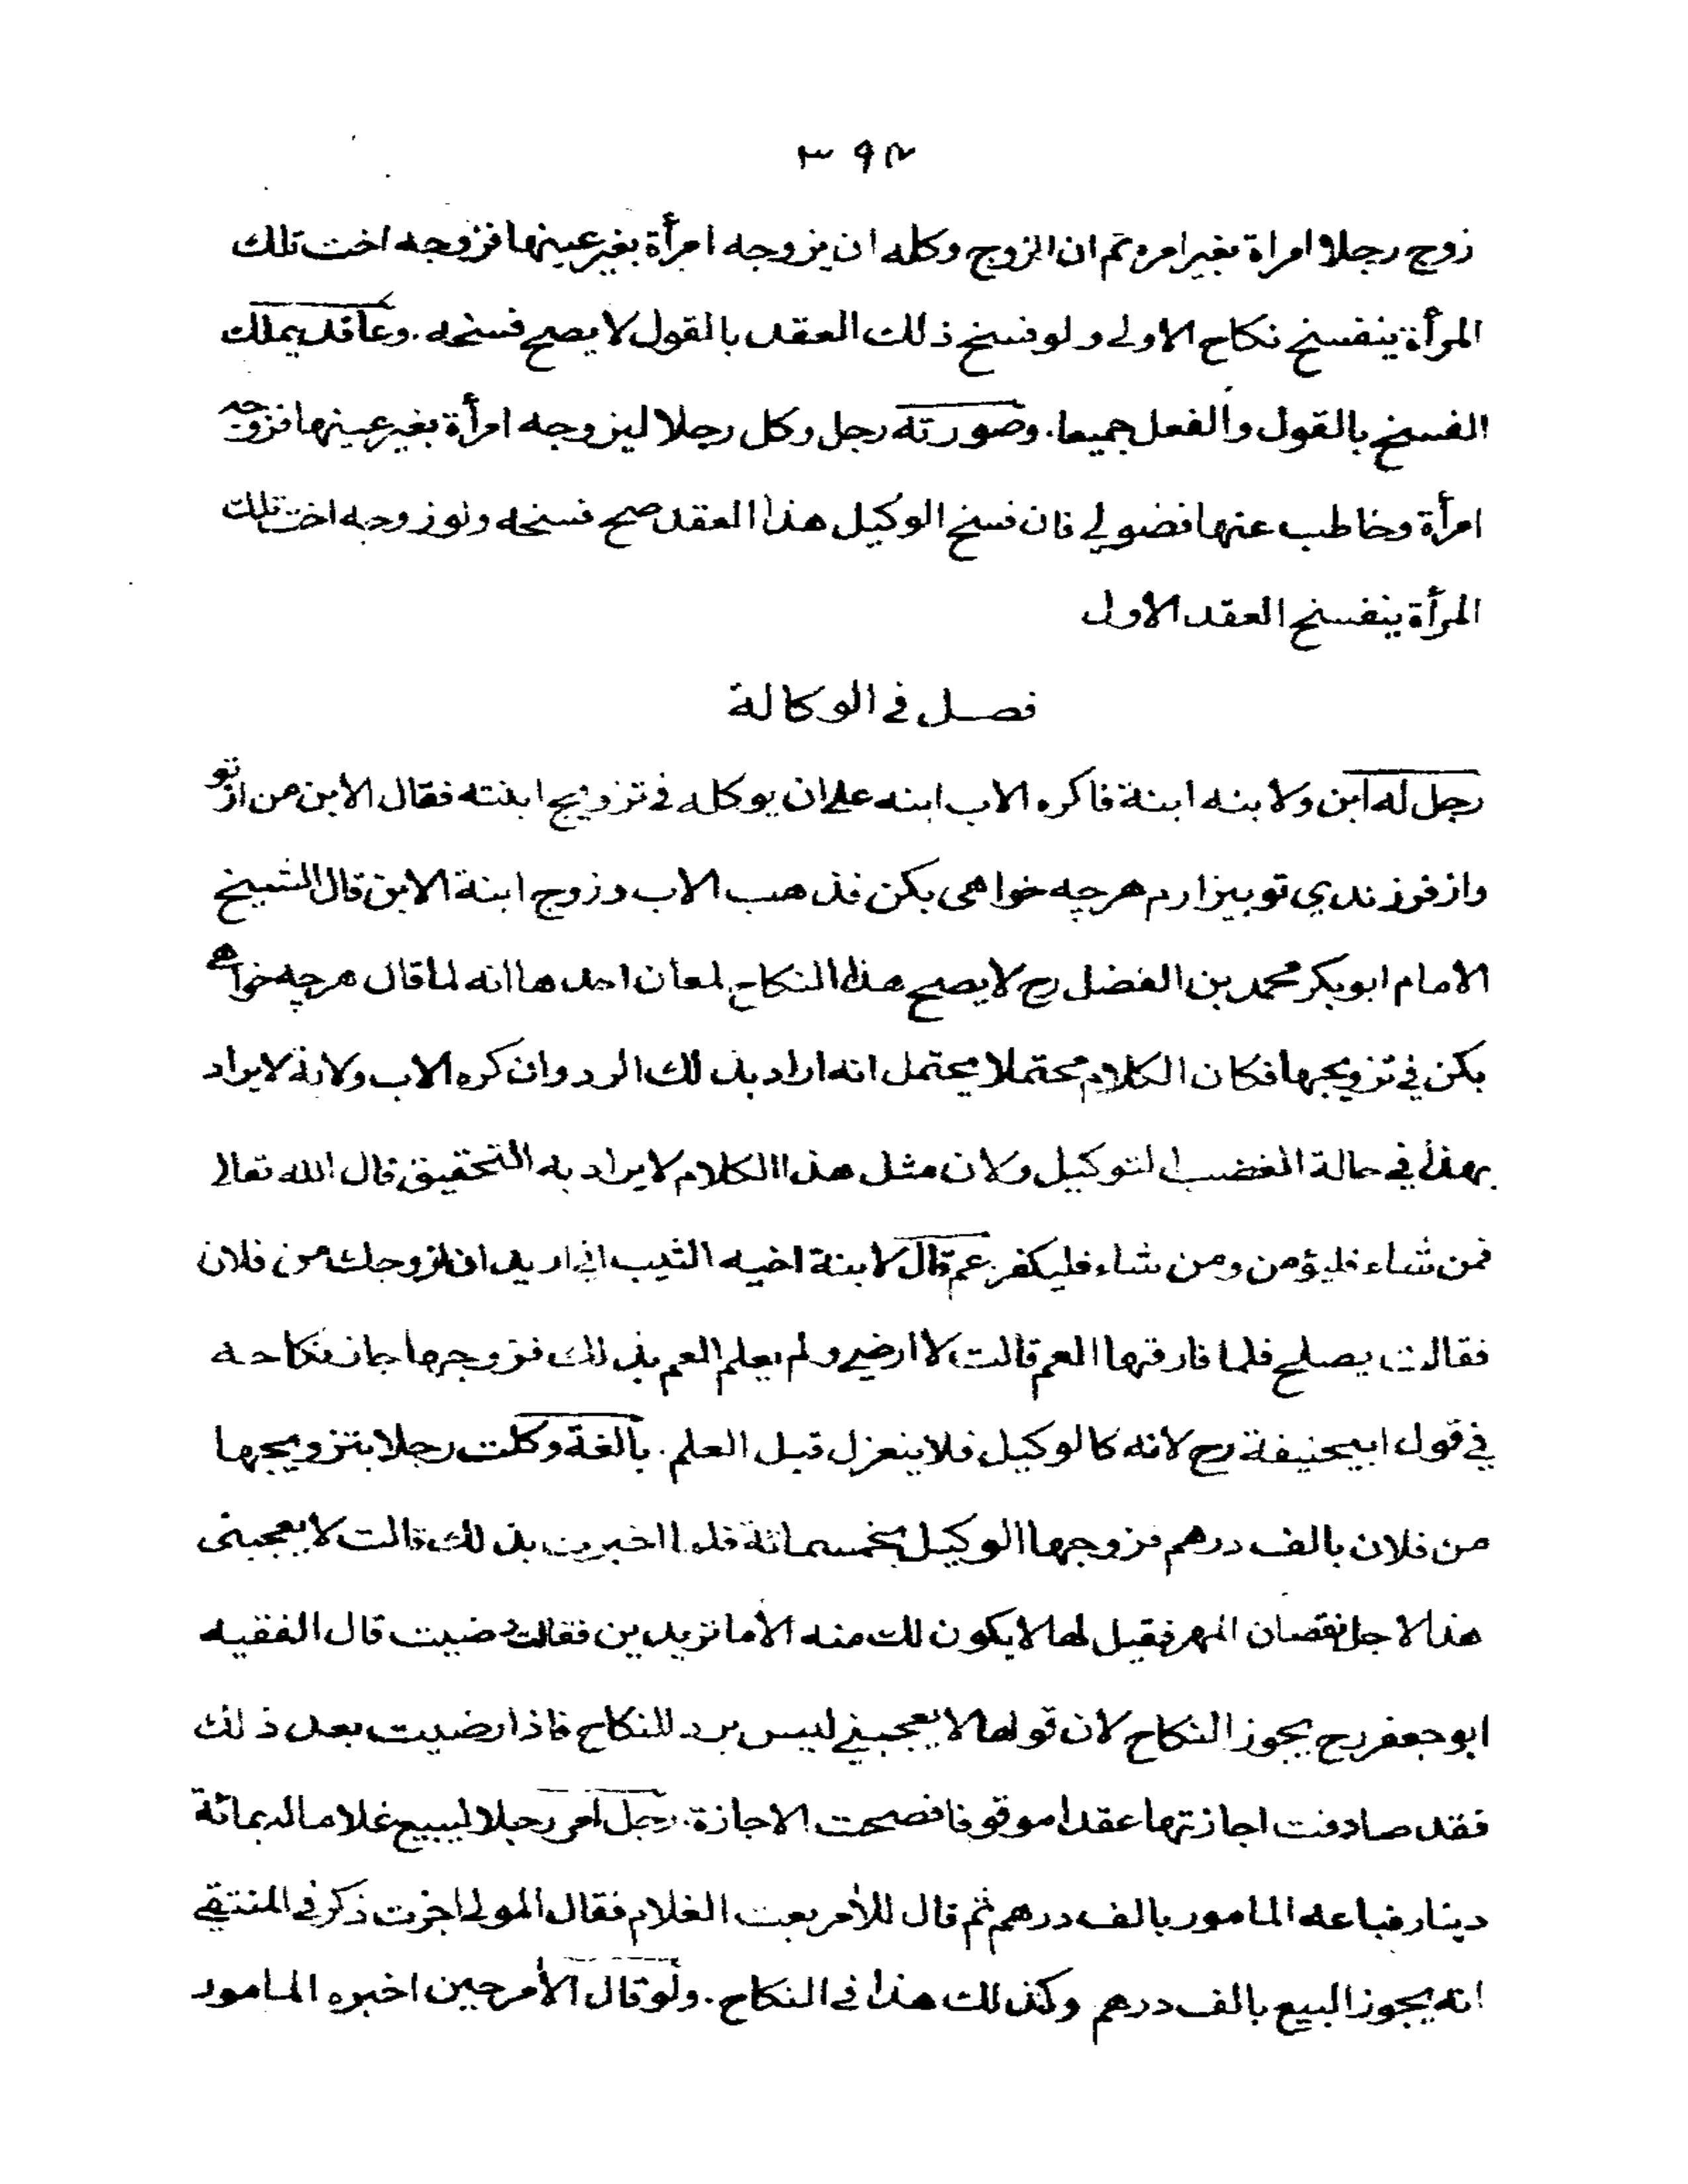 ٣٩٢
زوج رجلا امراة بغير امره ثم ان الزوج وكله ان يزوجه امرأة بغير عينها فزوجه اخت تلك
المرأة ينفسخ نكاح الاولى ولو فسخ ذلك العقد بالقول لا يصح فسخه. وعاقد يملك
الفسخ بالقول والفعل جميعا. وصورته رجل وكل رجلا ليزوجه امرأة بغير عينها فزوجه
امرأة وخاطب عنها فضولي فان فسخ الوكيل هذا العقد صح فسخه ولو زوجه اخت تلك
المرأة ينفسخ العقد الاول
فصل في الوكالة
رجل له ابن ولابنه ابنة فاكره الاب ابنه على ان يوكله في تزويج ابنته فقال الابن من از تو
واز فرزندي تو بيزارم هرچه خواهى بكن فذهب الاب وزوج ابنة الابن قال الشيخ
الامام ابو بكر محمد بن الفضل رح لا يصح هذا النكاح لمعان احدها انه لما قال هرچه خواهى
بكن في تزويجها فكان الكلام محتملا يحتمل انه اراد بذلك الرد وان كره الاب ولانه لا يراد
بهذا في حالة الغضب التوكيل ولان مثل هذا الكلام لا يراد به التحقيق قال الله تعالى
فمن شاء فليؤمن ومن شاء فليكفر. عم قال لابنة اخيه الثيب اني اريد ان ازوجك من فلان
فقالت يصلح فلما فارقها العم قالت لا ارضى ولم يعلم العم بذلك فزوجها جاز نكاحه
في قول ابيحنيفة رح لانه كالوكيل فلا ينعزل قبل العلم. بالغة وكلت رجلا بتزويجها
من فلان بالف درهم فزوجها الوكيل بخمسمائة فلما اخبرت بذلك قالت لا يعجبنى
هذا لاجل نقصان المهر فقيل لها لا يكون لك منه الا ما تريدين فقالت رضيت قال الفقيه
ابو جعفر رح يجوز النكاح لان قولها لا يعجبني ليس برد للنكاح فاذا رضيت بعد ذلك
فقد صادفت اجازتها عقدا موقوفا فصحت الاجازة. رجل امر رجلا ليبيع غلاما له بمائة
دينار فباعه المامور بالف درهم ثم قال للآمر بعت الغلام فقال المولى اجزت ذكر في المنتقي
انه يجوز البيع بالف درهم وكذلك هذا في النكاح. ولو قال الآمر حين اخبره المامور